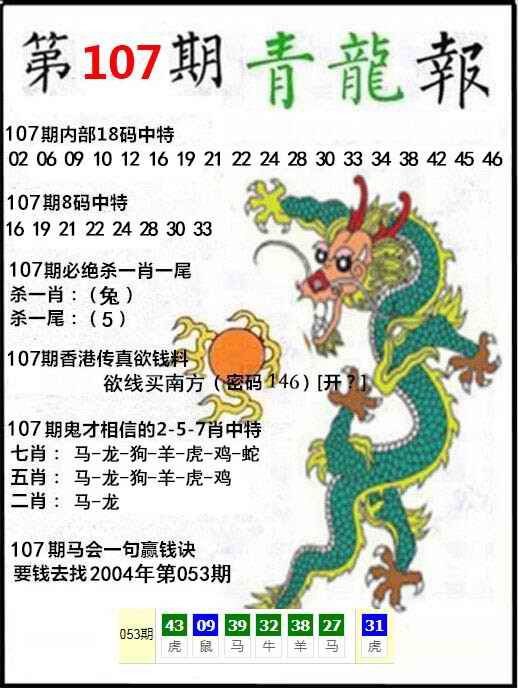 第107期青龍報
107期内部18码中特
02 06 09 10 12 16 19 21 22 24 28 30 33 34 38 42 45 46
107期8码中特
16 19 21 22 24 28 30 33
107期必绝杀一肖一尾
杀一肖：（兔）
杀一尾：（5）
107期香港传真欲钱料
欲线买南方（密码146）[开？]
107期鬼才相信的2-5-7肖中特
七肖： 马-龙-狗-羊-虎-鸡-蛇
五肖： 马-龙-狗-羊-虎-鸡
二肖： 马-龙
107期马会一句赢钱诀
要钱去找2004年第053期
053期 43 09 39 32 38 27 31
虎 鼠 马 牛 羊 马 虎